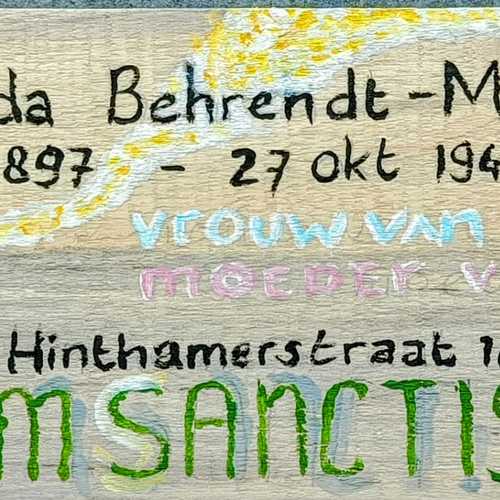 da Behrendt-M
897 - 27 okt 194
vrouw van
moeder v
Hinthamerstraat 1
MSANCTIS